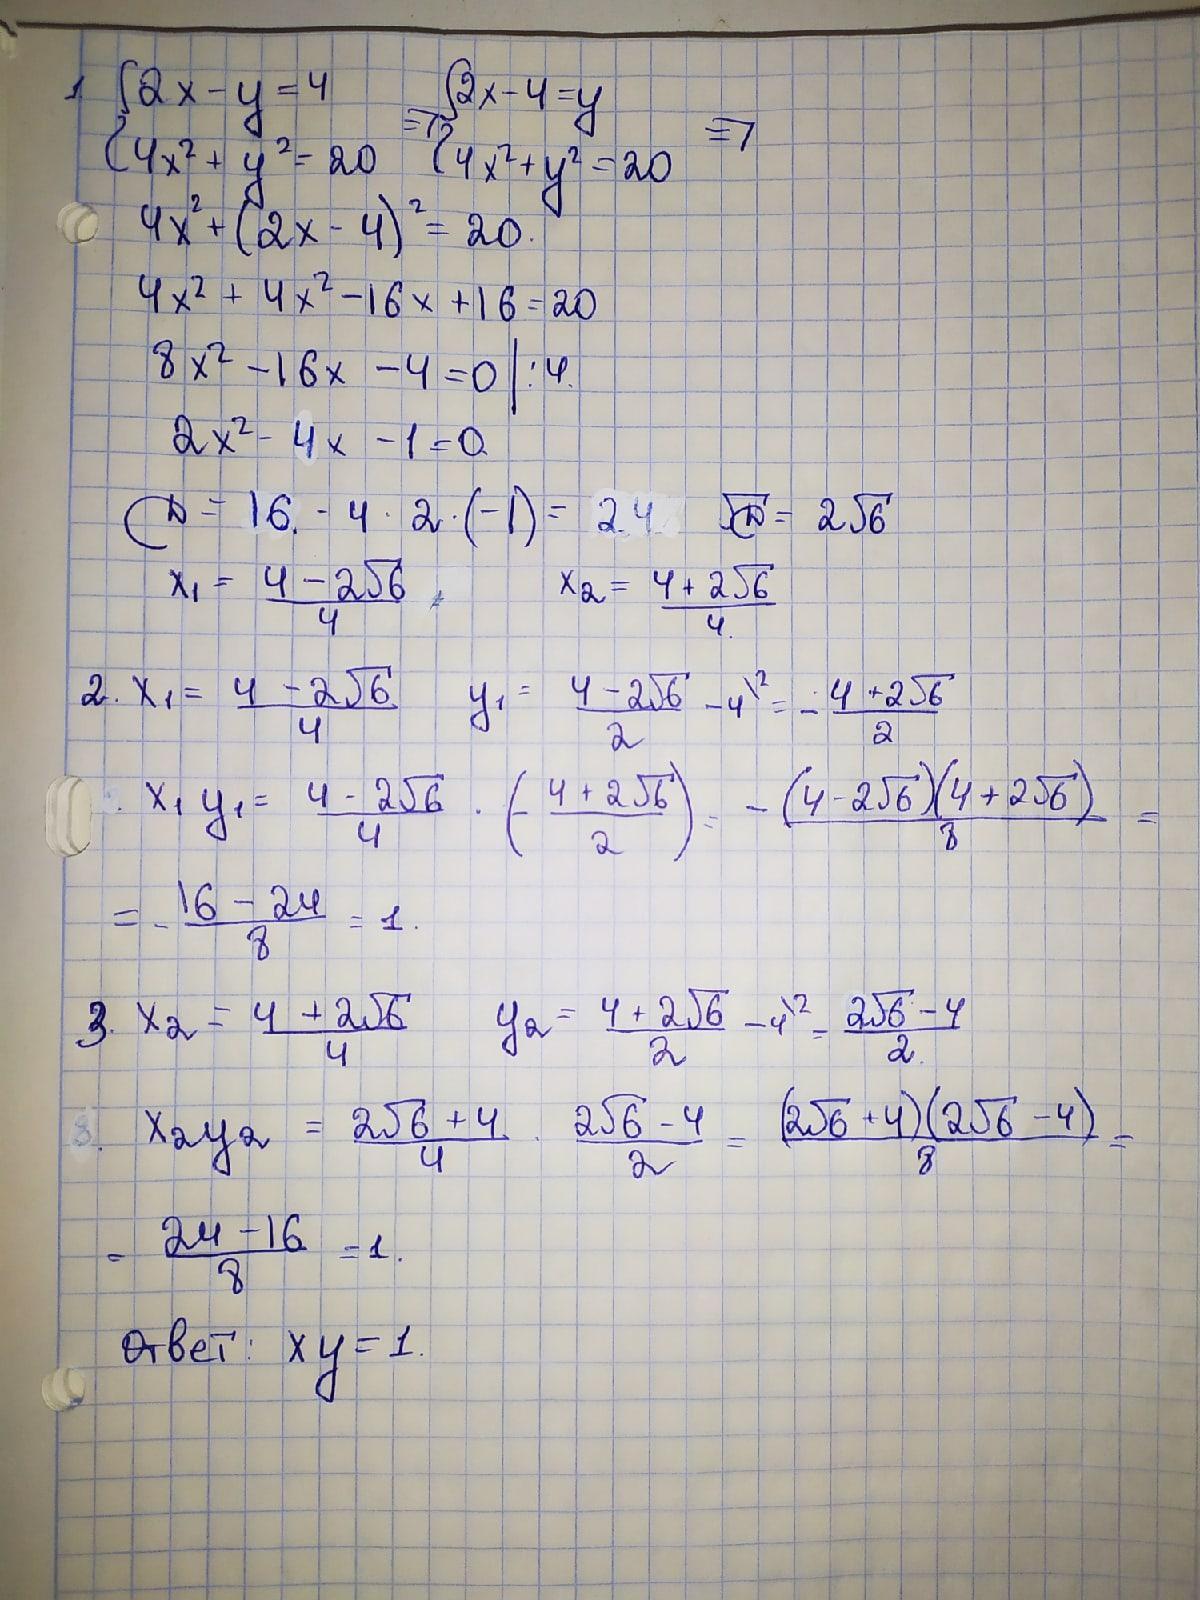 1 {2x - y = 4 => {2x - 4 = y =>
{4x² + y² = 20 {4x² + y² = 20
4x² + (2x - 4)² = 20.
4x² + 4x² - 16x + 16 = 20
8x² - 16x - 4 = 0 | :4.
2x² - 4x - 1 = 0
D = 16 - 4 · 2 · (-1) = 24 √D = 2√6
x₁ = (4 - 2√6)/4, x₂ = (4 + 2√6)/4.
2. x₁ = (4 - 2√6)/4 y₁ = (4 - 2√6)/2 - 4\² = - (4 + 2√6)/2
x₁y₁ = (4 - 2√6)/4 · (- (4 + 2√6)/2) = - (4 - 2√6)(4 + 2√6)/8 =
= - (16 - 24)/8 = 1.
3. x₂ = (4 + 2√6)/4 y₂ = (4 + 2√6)/2 - 4\² = (2√6 - 4)/2.
3. x₂y₂ = (2√6 + 4)/4 · (2√6 - 4)/2 = (2√6 + 4)(2√6 - 4)/8 =
= (24 - 16)/8 = 1.
Ответ: xy = 1.